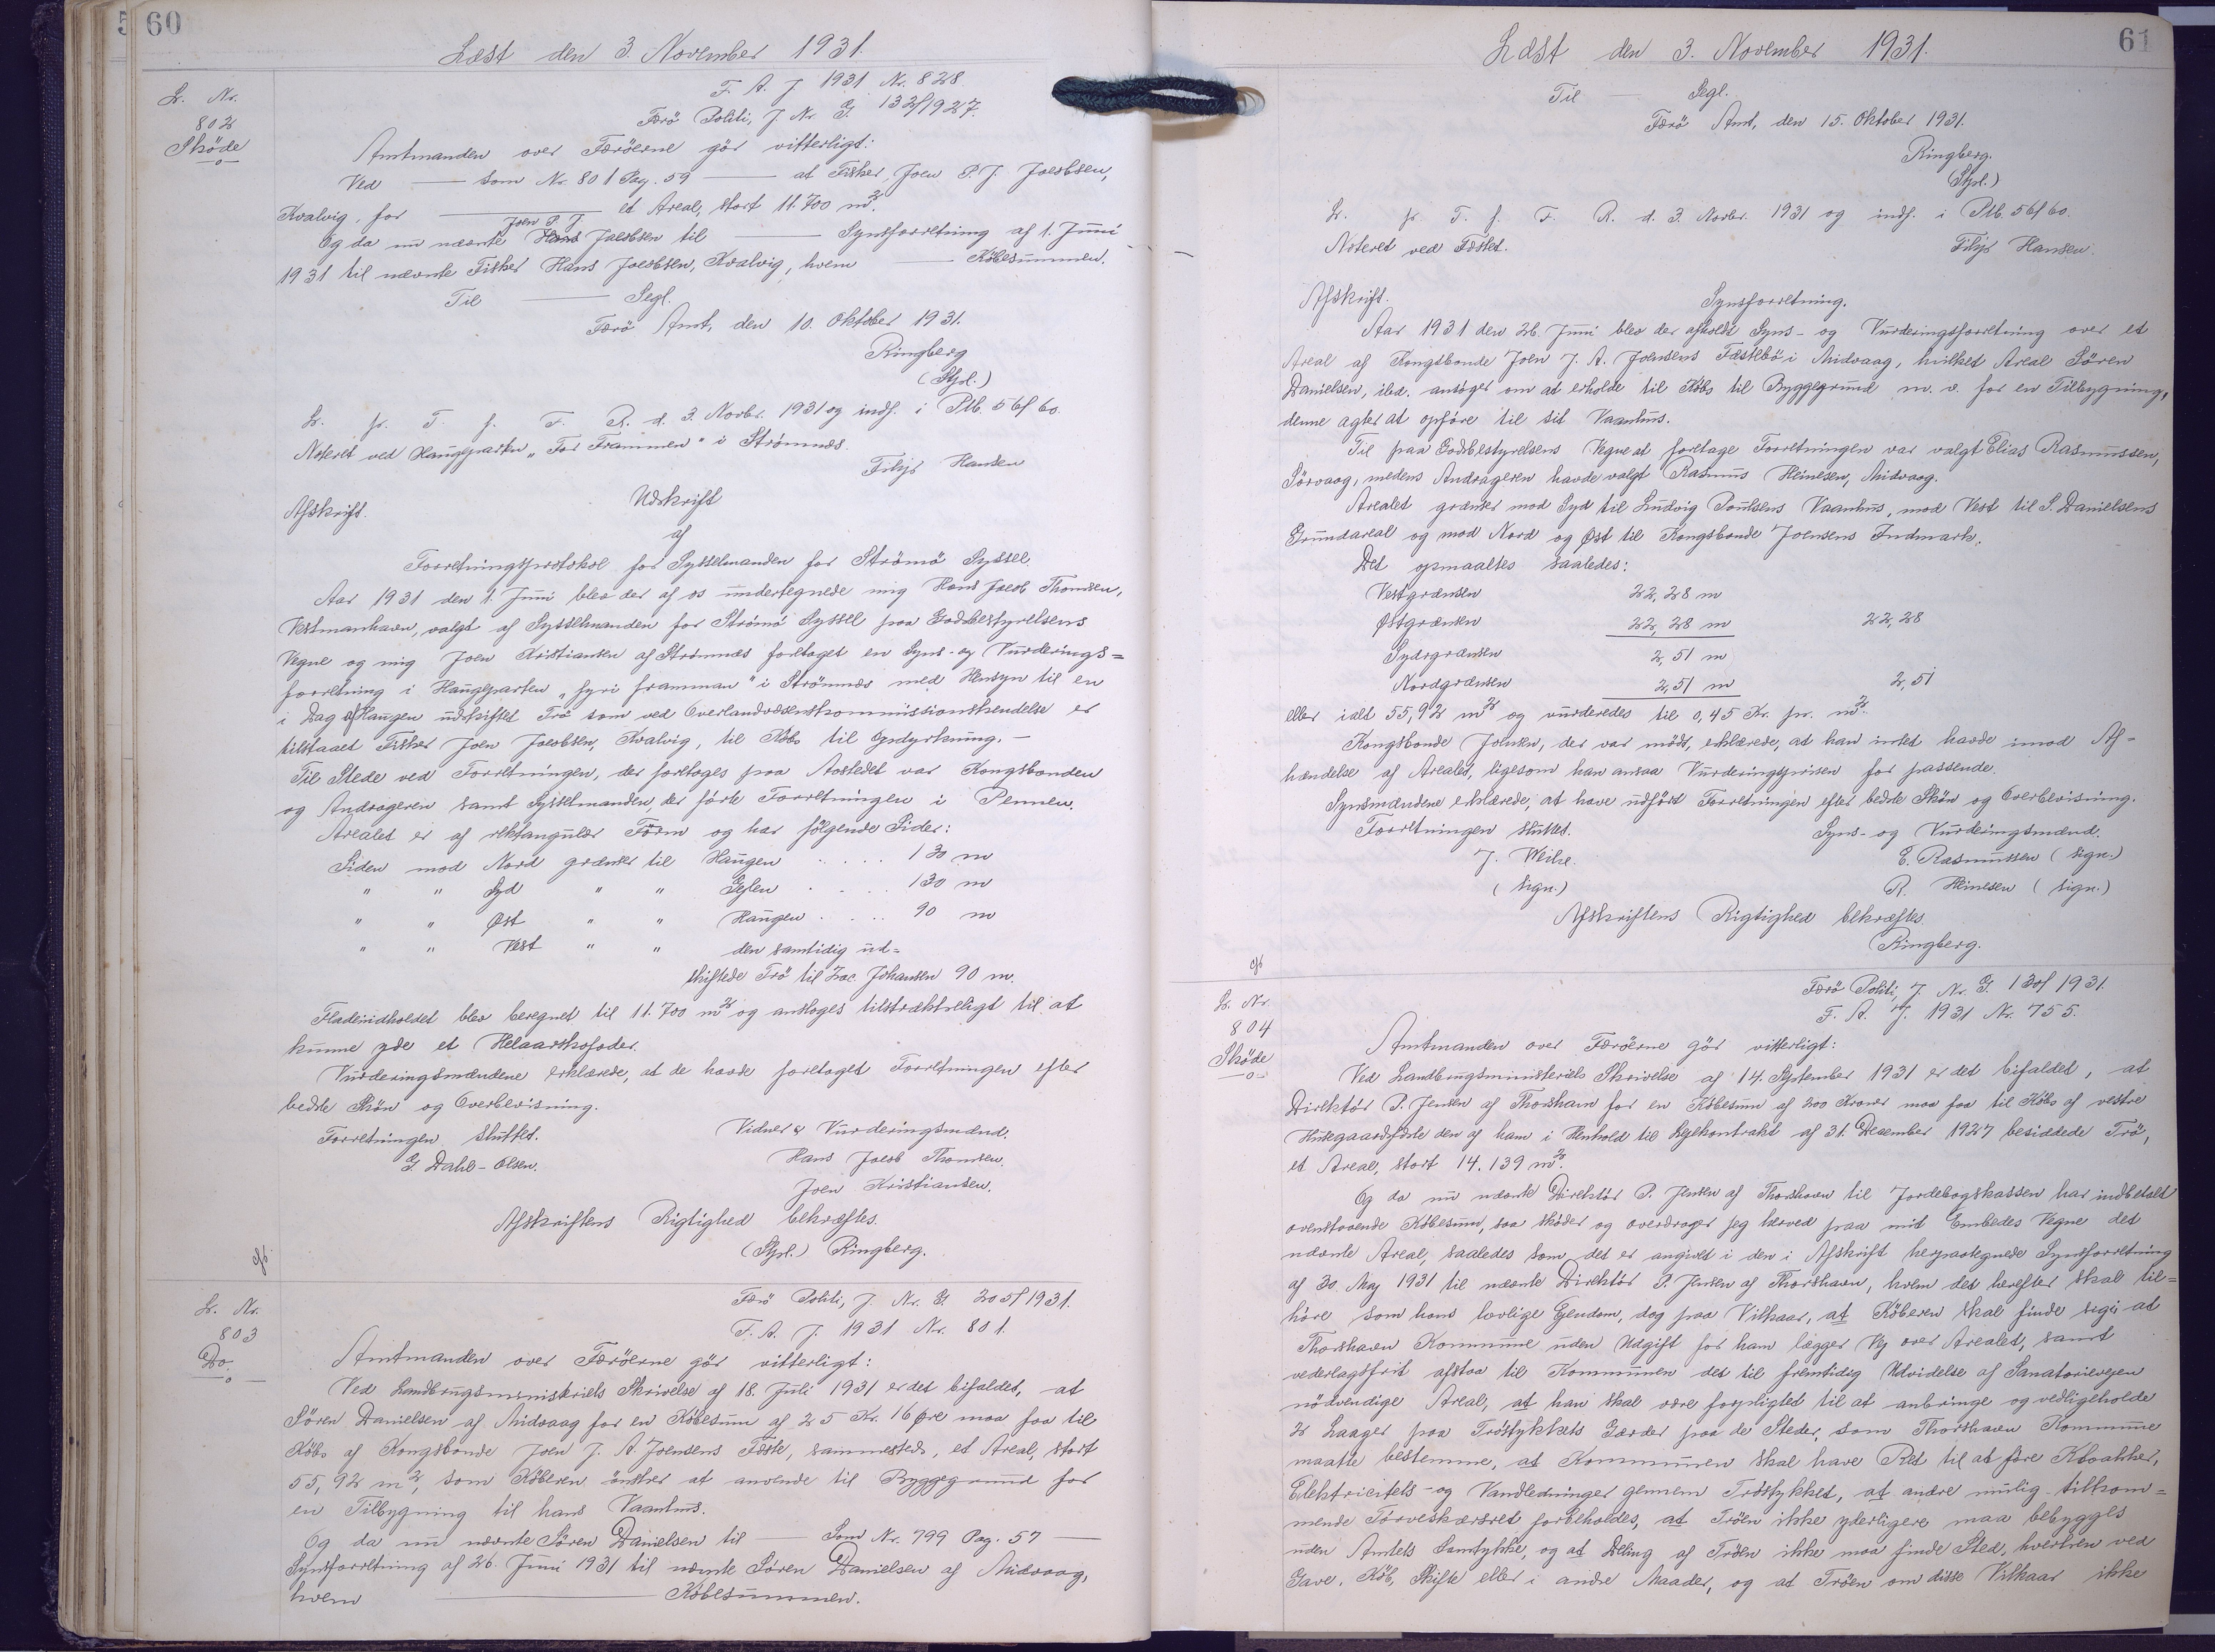 60
Læst den 3. November 1931.
L. Nr.
802
Skøde
F. A. J. 1931 Nr. 828
Færö Politi, J. Nr. G. 132/1927.
Amtmanden over Færöerne gör vitterligt:
Ved — som Nr. 801 Pag. 59 — at Fisker Joen P. J. Jacobsen,
Kvalvig, for — et Areal, stort 11.700 m².
Og da nu nævnte Joen P. J. Jacobsen til — Synsforretning af 1. Juni
1931 til nævnte Fisker Hans Jacobsen, Kvalvig, hvem — Købesummen.
Til — Segl.
Færö Amt, den 10. Oktober 1931.
Ringberg
(Stpl.)
L. fr. T. f. F. R. d. 3. Novbr. 1931 og indf. i Ptb. 56f 60.
Noteret ved Haugeparten "For Frammen" i Strömnæs.
Filip Hansen
Afskrift.
Udskrift
af
Forretningsprotokol for Sysselmanden for Strömö Syssel.
Aar 1931 den 1. Juni blev der af os undertegnede mig Hans Jacob Thomsen,
Vestmanhavn, valgt af Sysselmanden for Strömö Syssel paa Godsbestyrelsens
Vegne og mig Joen Kristiansen af Strömnæs foretaget en Syns- og Vurderings=
forretning i Haugeparten "fyri framman" i Strömnæs med Hensyn til en
i Dag af Haugen udskiftet Trö som ved Overlandvæsenskommissionskendelse er
tilstaaet Fisker Joen Jacobsen, Kvalvig, til Købs til Opdyrkning. —
Til Stede ved Forretningen, der foretoges paa Aastedet var Kongsbonden
og Andrageren samt Sysselmanden, der förte Forretningen i Pennen.
Arealet er af rektangulær Form og har følgende Sider:
Siden mod Nord grænser til Haugen . . . . 130 m
" " Syd " " . . . 130 m
" " Øst " " Haugen . . . . 90 m
" " Vest " " den samtidig ud=
skiftede Trö til Zac. Johansen 90 m.
Fladeindholdet blev beregnet til 11.700 m² og ansloges tilstrækkeligt til at
kunne yde et Helaarskofoder.
Vurderingsmændene erklærede, at de havde foretaget Forretningen efter
bedste Skön og Overbevisning.
Forretningen sluttet.
Vidner & Vurderingsmænd.
G. Dahl-Olsen.
Hans Jacob Thomsen.
Joen Kristiansen.
Afskriftens Rigtighed bekræftes.
(Stpl.) Ringberg.
L. Nr.
803
Do.
Færö Politi, J. Nr. G. 205/1931.
F. A. J. 1931 Nr. 801.
Amtmanden over Færöerne gör vitterligt:
Ved Landbrugsministeriets Skrivelse af 18. Juli 1931 er det bifaldet, at
Sören Danielsen af Midvaag for en Købesum af 25 Kr. 16 Øre maa faa til
Købs af Kongsbonde Joen J. A. Joensens Fæste, sammesteds, et Areal, stort
55,92 m², som Køberen önsker at anvende til Byggegrund for
en Tilbygning til hans Vaanhus.
Og da nu nævnte Sören Danielsen til — Som Nr. 799 Pag. 57 —
Synsforretning af 26. Juni 1931 til nævnte Søren Danielsen af Midvaag,
hvem — Købesummen.
61
Læst den 3. November 1931.
Til — Segl.
Færö Amt, den 15. Oktober 1931.
Ringberg.
(Stpl.)
L. fr. T. f. F. R. d. 3. Novbr. 1931 og indf. i Ptb. 56f 60.
Noteret ved Fæstet.
Filip Hansen.
Afskrift.
Synsforretning.
Aar 1931 den 26. Juni blev der afholdt Syns- og Vurderingsforretning over et
Areal af Kongsbonde Joen J. A. Joensens Fæstebö i Midvaag, hvilket Areal Sören
Danielsen, ibd. ansöger om at erholde til Købs til Byggegrund m. v. for en Tilbygning,
denne agter at opföre til sit Vaanhus.
Til paa Godsbestyrelsens Vegne at foretage Forretningen var valgt Elias Rasmussen,
Sörvaag, medens Andrageren havde valgt Rasmus Heinesen, Midvaag.
Arealet grænser mod Syd til Ludvig Poulsens Vaanhus, mod Vest til S. Danielsens
Grundareal og mod Nord og Øst til Kongsbonde Joensens Indmark.
Det opmaaltes saaledes:
Vestgrænsen 22,28 m
Østgrænsen 22,28 m 22,28
Sydgrænsen 2,51 m
Nordgrænsen 2,51 m 2,51
eller ialt 55,92 m² og vurderedes til 0,45 Kr. pr. m².
Kongsbonde Joensen, der var mödt, erklærede, at han intet havde imod Af=
hændelse af Arealet, ligesom han ansaa Vurderingsprisen for passende.
Synsmændene erklærede, at have udfört Forretningen efter bedste Skön og Overbevisning.
Forretningen sluttet.
Syns- og Vurderingsmænd.
J. Weihe.
E. Rasmussen (sign.)
(sign.)
R. Heinesen (sign.)
Afskriftens Rigtighed bekræftes.
Ringberg.
L. Nr.
804
Skøde
Færö Politi, J. Nr. G. 130/1931.
F. A. J. 1931 Nr. 755.
Amtmanden over Færöerne gör vitterligt:
Ved Landbrugsministeriets Skrivelse af 14. September 1931 er det bifaldet, at
Direktör P. Jensen af Thorshavn for en Købesum af 200 Kroner maa faa til Købs af vestre
Husegaardsfæste den af ham i Henhold til Lejekontrakt af 31. December 1927 besiddede Trö,
et Areal, stort 14.139 m².
Og da nu nævnte Direktör P. Jensen af Thorshavn til Jordebogskassen har indbetalt
ovenstaaende Købesum, saa skøder og overdrager jeg herved paa mit Embedes Vegne det
nævnte Areal, saaledes som det er angivet i den i Afskrift herpaategnede Synsforretning
af 30. Maj 1931 til nævnte Direktör P. Jensen af Thorshavn, hvem det herefter skal til=
höre som hans lovlige Ejendom, dog paa Vilkaar, at Køberen skal finde sig i, at
Thorshavn Kommune uden Udgift for ham lægger Vej over Arealet, samt
vederlagsfrit afstaa til Kommunen det til fremtidig Udvidelse af Sanatorievejen
nödvendige Areal, at han skal være forpligtet til at anbringe og vedligeholde
2 Laager paa Tröstykkets Gærder paa de Steder, som Thorshavn Kommune
maatte bestemme, at Kommunen skal have Ret til at före Kloakker,
Elektricitets- og Vandledninger gennem Tröstykket, at andre mulig tilkom=
mende Törveskærsret forbeholdes, at Tröen ikke yderligere maa bebygges
uden Amtets Samtykke, og at Deling af Tröen ikke maa finde Sted, hverken ved
Gave, Køb, Skifte eller i andre Maader, og at Tröen om disse Vilkaar ikke